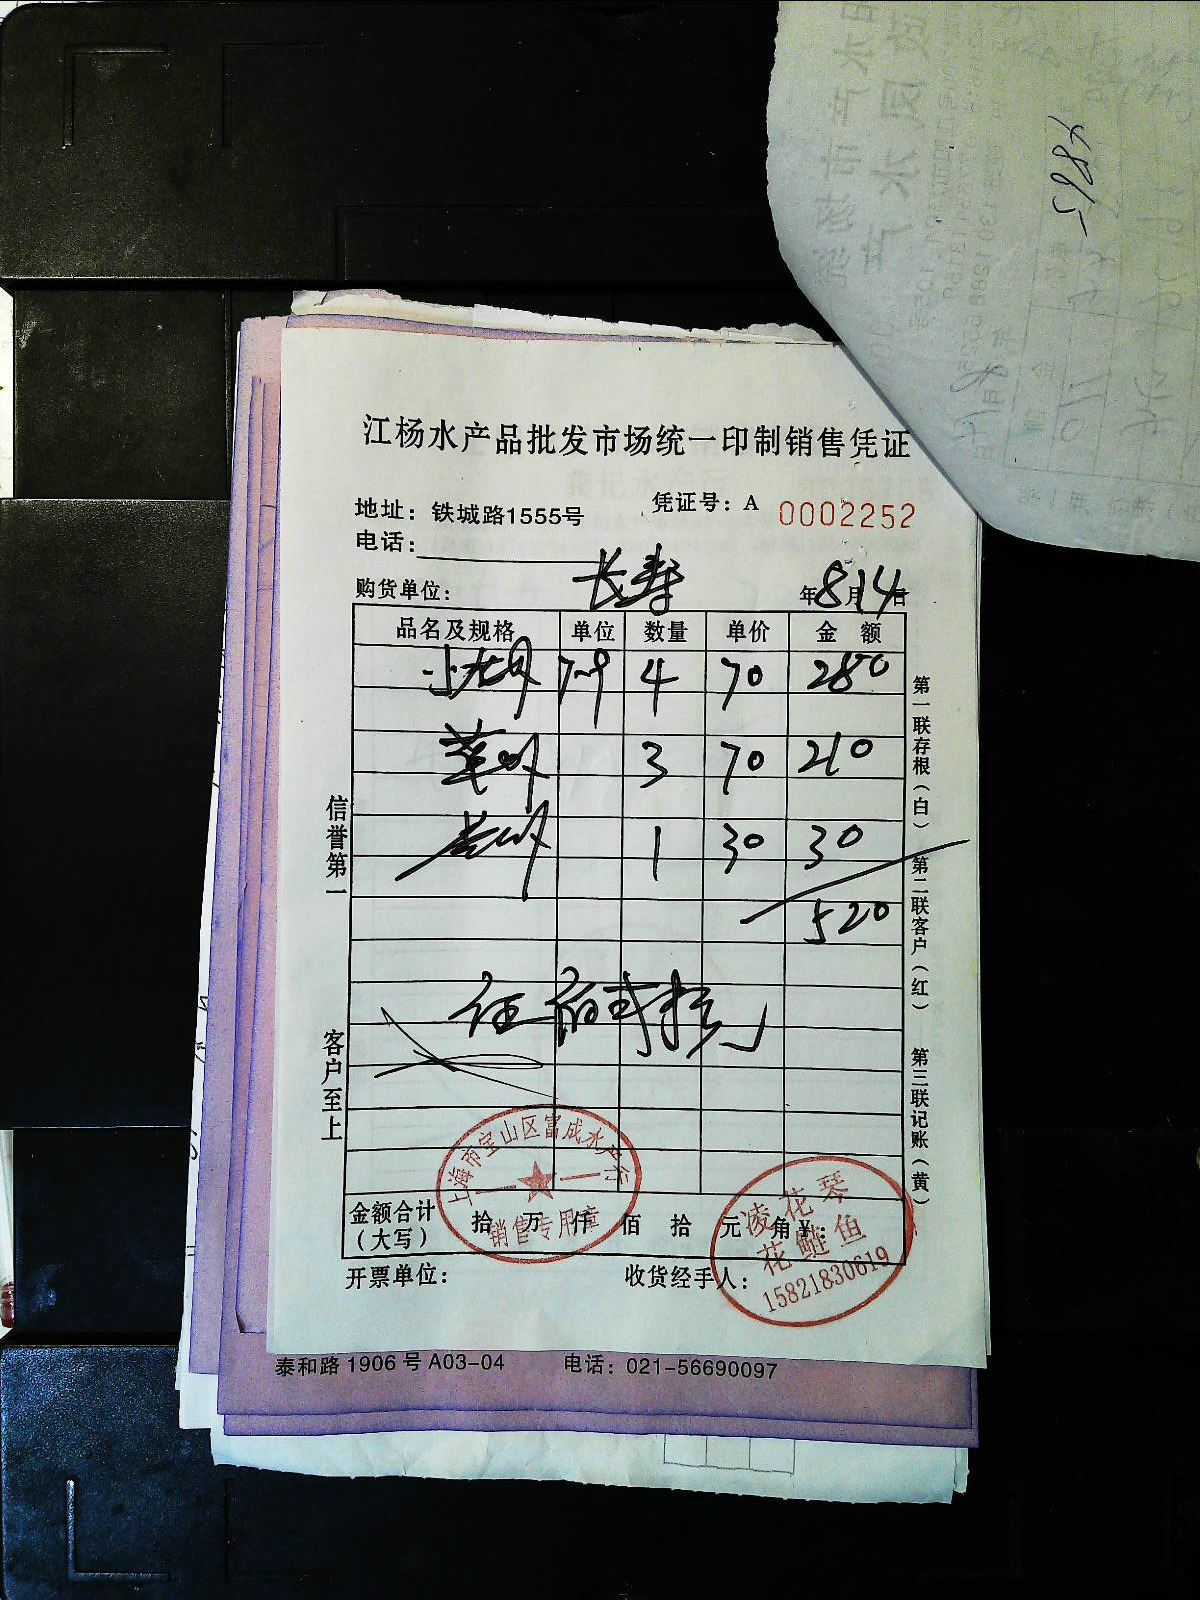 4865
江杨水产品批发市场统一印制销售凭证
地址：铁城路1555号 凭证号：A 0002252
电话：
购货单位： 长寿 年8月14日
品名及规格 单位 数量 单价 金 额
7-9 4 70 280
3 70 210
1 30 30
520
伍佰贰拾元
信誉第一
客户至上
第一联存根（白）
第二联客户（红）
第三联记账（黄）
上海市宝山区富成水产行
销售专用章
金额合计（大写） 拾 万 仟 佰 拾 元 角 ¥：
凌花琴
花鲢鱼
15821830619
开票单位： 收货经手人：
泰和路 1906 号 A03-04 电话：021-56690097